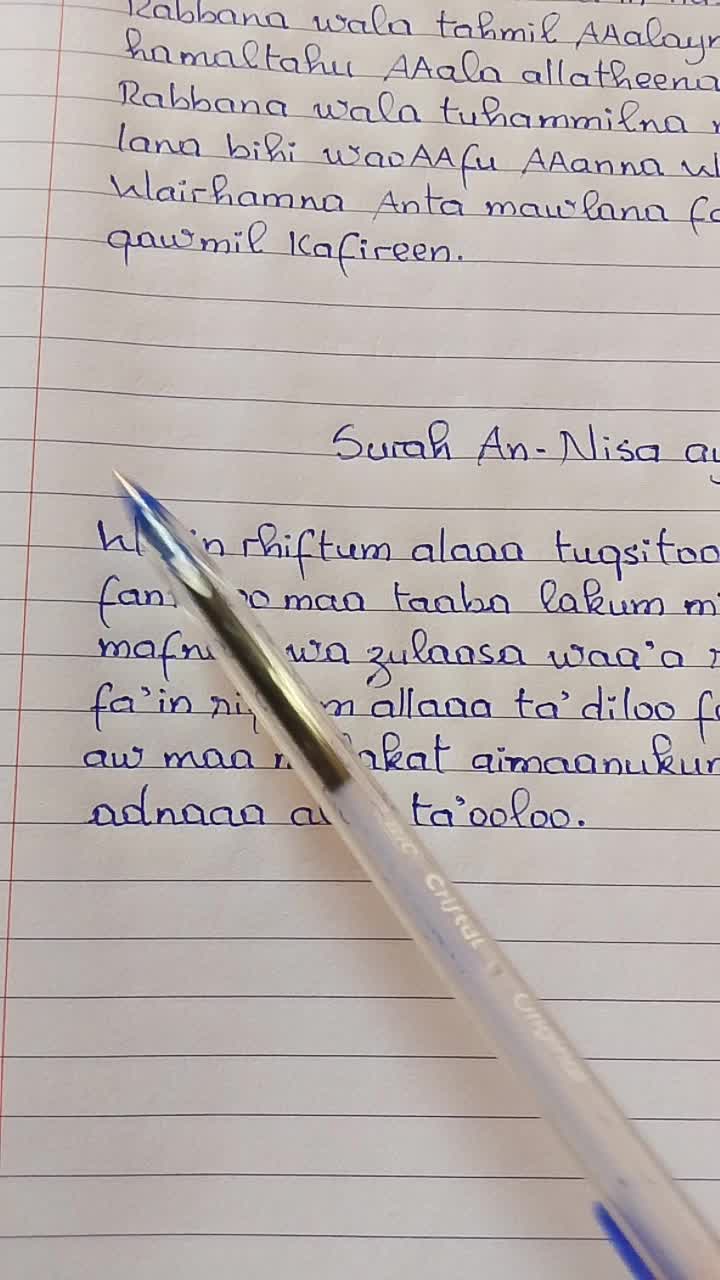 Rabbana wala tahmil AAalayn
hamaltahu AAala allatheena
Rabbana wala tuhammilna
lana bihi waoAAfu AAanna
Wairhamna Anta mawlana
qawmil Kafireen.
Surah An-Nisa
rhiftum alaaa tuqsitoo
maa taaba lakum
wa zulaasa waa'a
fa'in allaaa ta'diloo
aw maa aimaanukum
adnaaa ta'ooloo.
Cristal Original